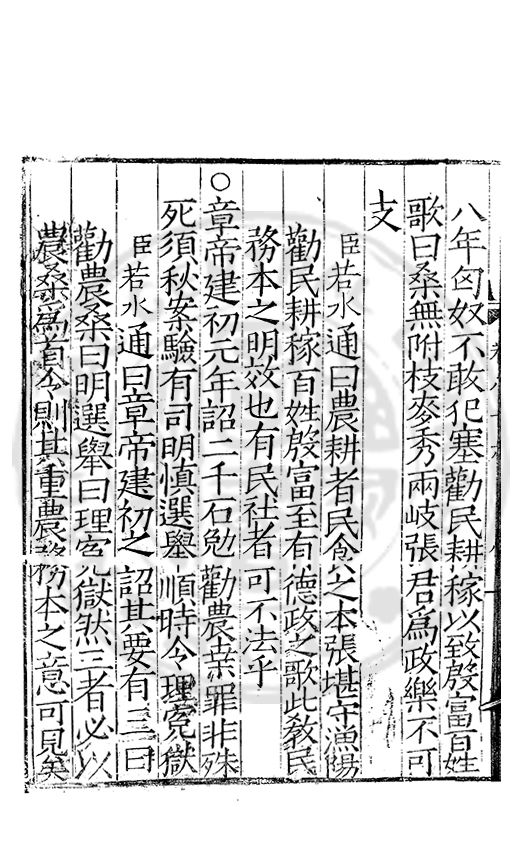 八年匈奴不敢犯塞勸民耕稼以致殷富百姓
歌曰桑無附枝麥秀兩歧張君爲政樂不可
支
臣若水通曰農耕者民食之本張堪守漁陽
勸民耕稼百姓殷富至有德政之歌此教民
務本之明效也有民社者可不法乎
○章帝建初元年詔二千石勉勸農桒罪非殊
死須秋案驗有司明慎選舉順時令理寃獄
臣若水通曰章帝建初之詔其要有三曰
勸農桑曰明選舉曰理寃獄然三者必以
農桑爲首令則其重農務本之意可見矣